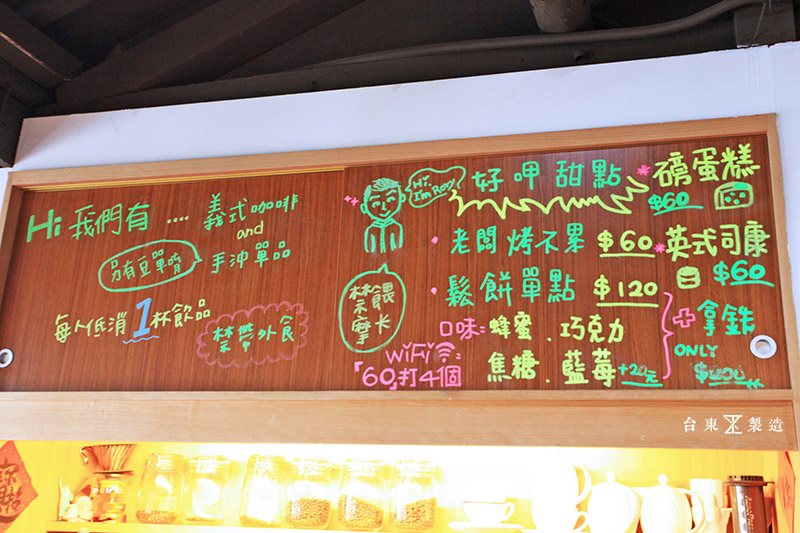 Hi 我們有 .... 義式咖啡
and
手沖單品
另有豆單唷
每人低消1杯飲品
禁帶外食
Hi, I'm Roy
好呷甜點
老闆烤不累 $60
鬆餅單點 $120
口味:蜂蜜、巧克力
焦糖、藍莓 +20元
禁餵摩卡
WiFi:
「60」打4個
磅蛋糕
$60
英式司康
$60
+ 拿鉄
ONLY
台東製造